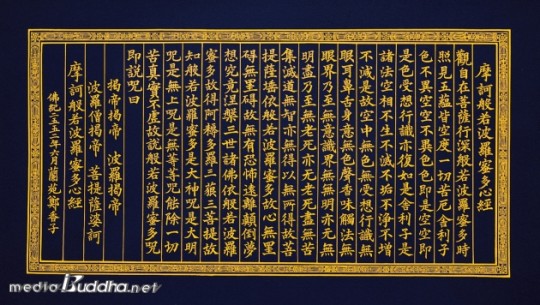 摩訶般若波羅蜜多心經
觀自在菩薩行深般若波羅蜜多時
照見五蘊皆空度一切苦厄舍利子
色不異空空不異色色即是空空即
是色受想行識亦復如是舍利子是
諸法空相不生不滅不垢不淨不增
不減是故空中無色無受想行識無
眼耳鼻舌身意無色聲香味觸法無
眼界乃至無意識界無無明亦無無
明盡乃至無老死亦無老死盡無苦
集滅道無智亦無得以無所得故菩
提薩埵依般若波羅蜜多故心無罣
碍無罣碍故無有恐怖遠離顛倒夢
想究竟涅槃三世諸佛依般若波羅
蜜多故得阿耨多羅三藐三菩提故
知般若波羅蜜多是大神呪是大明
呪是無上呪是無等等呪能除一切
苦真實不虛故說般若波羅蜜多呪
即說呪曰
揭帝揭帝 波羅揭帝
波羅僧揭帝 菩提薩婆訶
摩訶般若波羅蜜多心經
佛紀二五五二年六月 蘭苑 鄭香子
mediaBuddha.net